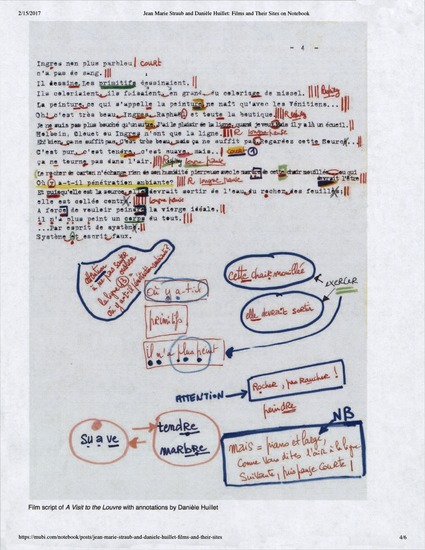 2/15/2017
Jean Marie Straub and Danièle Huillet: Films and Their Sites on Notebook
- 4 -
Ingres non plus parbleu! court
n'a pas de sang.
Il dessine. Les primitifs dessinaient.
Ils coloriaient, ils faisaient, en grand, du coloriage de missel.
La peinture, ce qui s'appelle la peinture ne naît qu'avec les Vénitiens...
Oh! c'est très beau, Ingres, Raphaël et toute la boutique.
Je ne suis pas plus bouché qu'un autre. J'ai le plaisir de la ligne, quand je veux. Mais il y a là un écueil.
Holbein, Clouet ou Ingres n'ont que la ligne. R longue pause
Eh bien, ça ne suffit pas. C'est très beau, mais ça ne suffit pas. Regardez cette Source.
C'est pur, c'est tendre, c'est suave, mais court
ça ne tourne pas dans l'air. longue pause
Où y a-t-il pénétration ambiante? R longue pause
elle est collée contre. longue pause
A force de vouloir peindre la vierge idéale,
il n'a plus peint un corps du tout.
...Par esprit de système
Système et esprit faux.
attention
la ligne
où y a-t-il pénétration ambiante?
où y a-t-il
primitifs
il n'a plus peint
cette chair mouillée
elle devrait sortir
EXERCER
ATTENTION
Rocher, pas Raucher!
peindre
suave
tendre
marbre
NB
mais = piano et large,
comme vous dites l'air à la ligne
suivante, puis pause courte!
Film script of A Visit to the Louvre with annotations by Danièle Huillet
https://mubi.com/notebook/posts/jean-marie-straub-and-daniele-huillet-films-and-their-sites
4/6